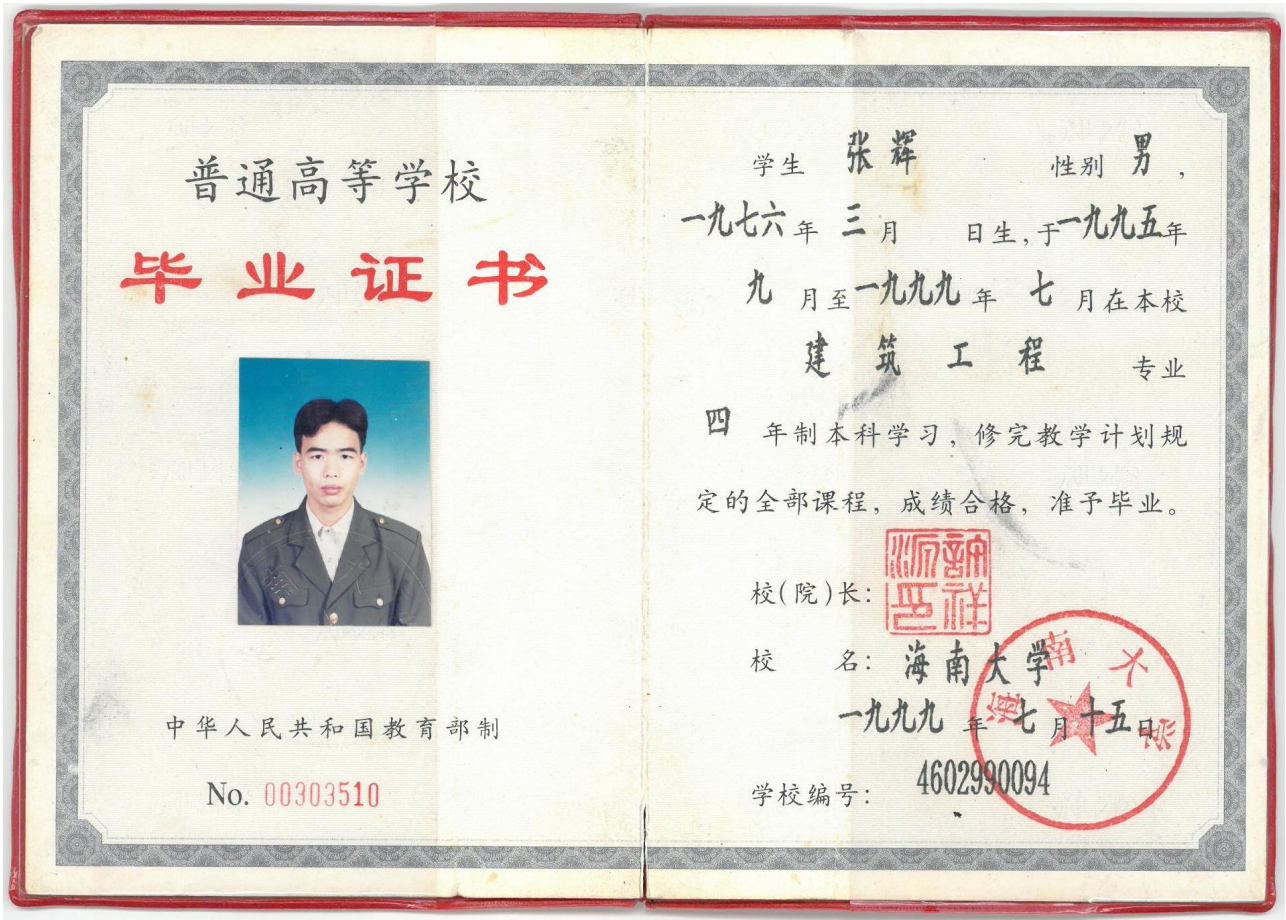 普通高等学校
毕业证书
中华人民共和国教育部制
No. 00303510
学生 张辉 性别 男，
一九七六年 三月 日生，于一九九五年
九 月至一九九九年 七月在本校
建筑工程 专业
四 年制本科学习，修完教学计划规
定的全部课程，成绩合格，准予毕业。
校(院)长：
校 名：海南大学
海南大学
一九九九年七月十五日
学校编号：4602990094